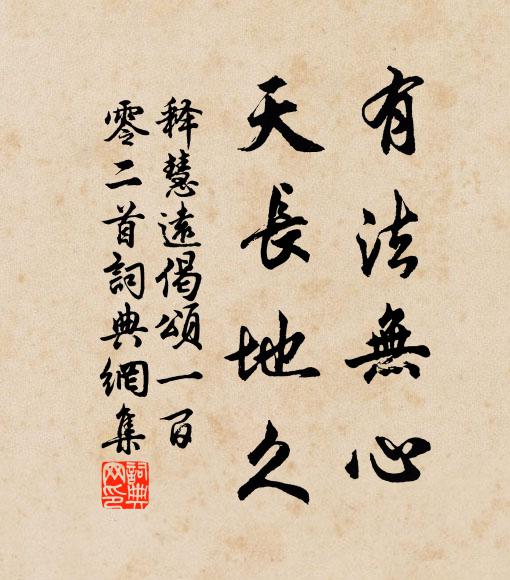 有法無心
天長地久
释慧遠偈頌一百
零二首詞典網集
詞典網印